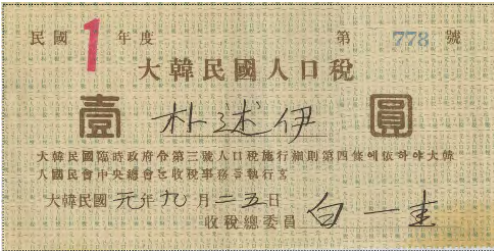 民國1年度 第 778 號
大韓民國人口稅
壹 朴述伊 圓
大韓民國臨時政府令第三號人口稅施行細則第四條에依하야大韓
人國民會中央總會는收稅事務를執行홈
大韓民國元年九月二五日
收稅總委員 白一圭